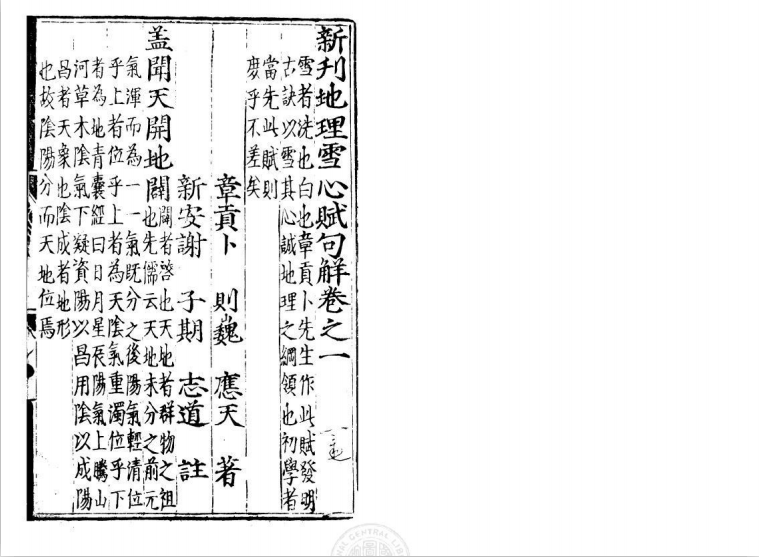 新刊地理雪心賦句解卷之一
雪者洗也白也章貢卜先生作此賦發明
古訣以雪其心誠地理之綱領也初學者
當先此賦則
庻乎不差矣
章貢卜 則巍 應天 著
新安謝 子期 志道 註
盖聞天開地闢
闢者啓也天地者群物之祖
也先儒云天地未分之前元
氣渾而為一一氣既分之後陽氣輕清位
乎上者位乎上者為天陰氣重濁位乎下
者為地青囊經曰日月星辰陽氣上騰山
河草木陰氣下疑資陽以昌用陰以成陽
昌者天象也陰成者地形
也故陰陽分而天地位焉
CENTRAL